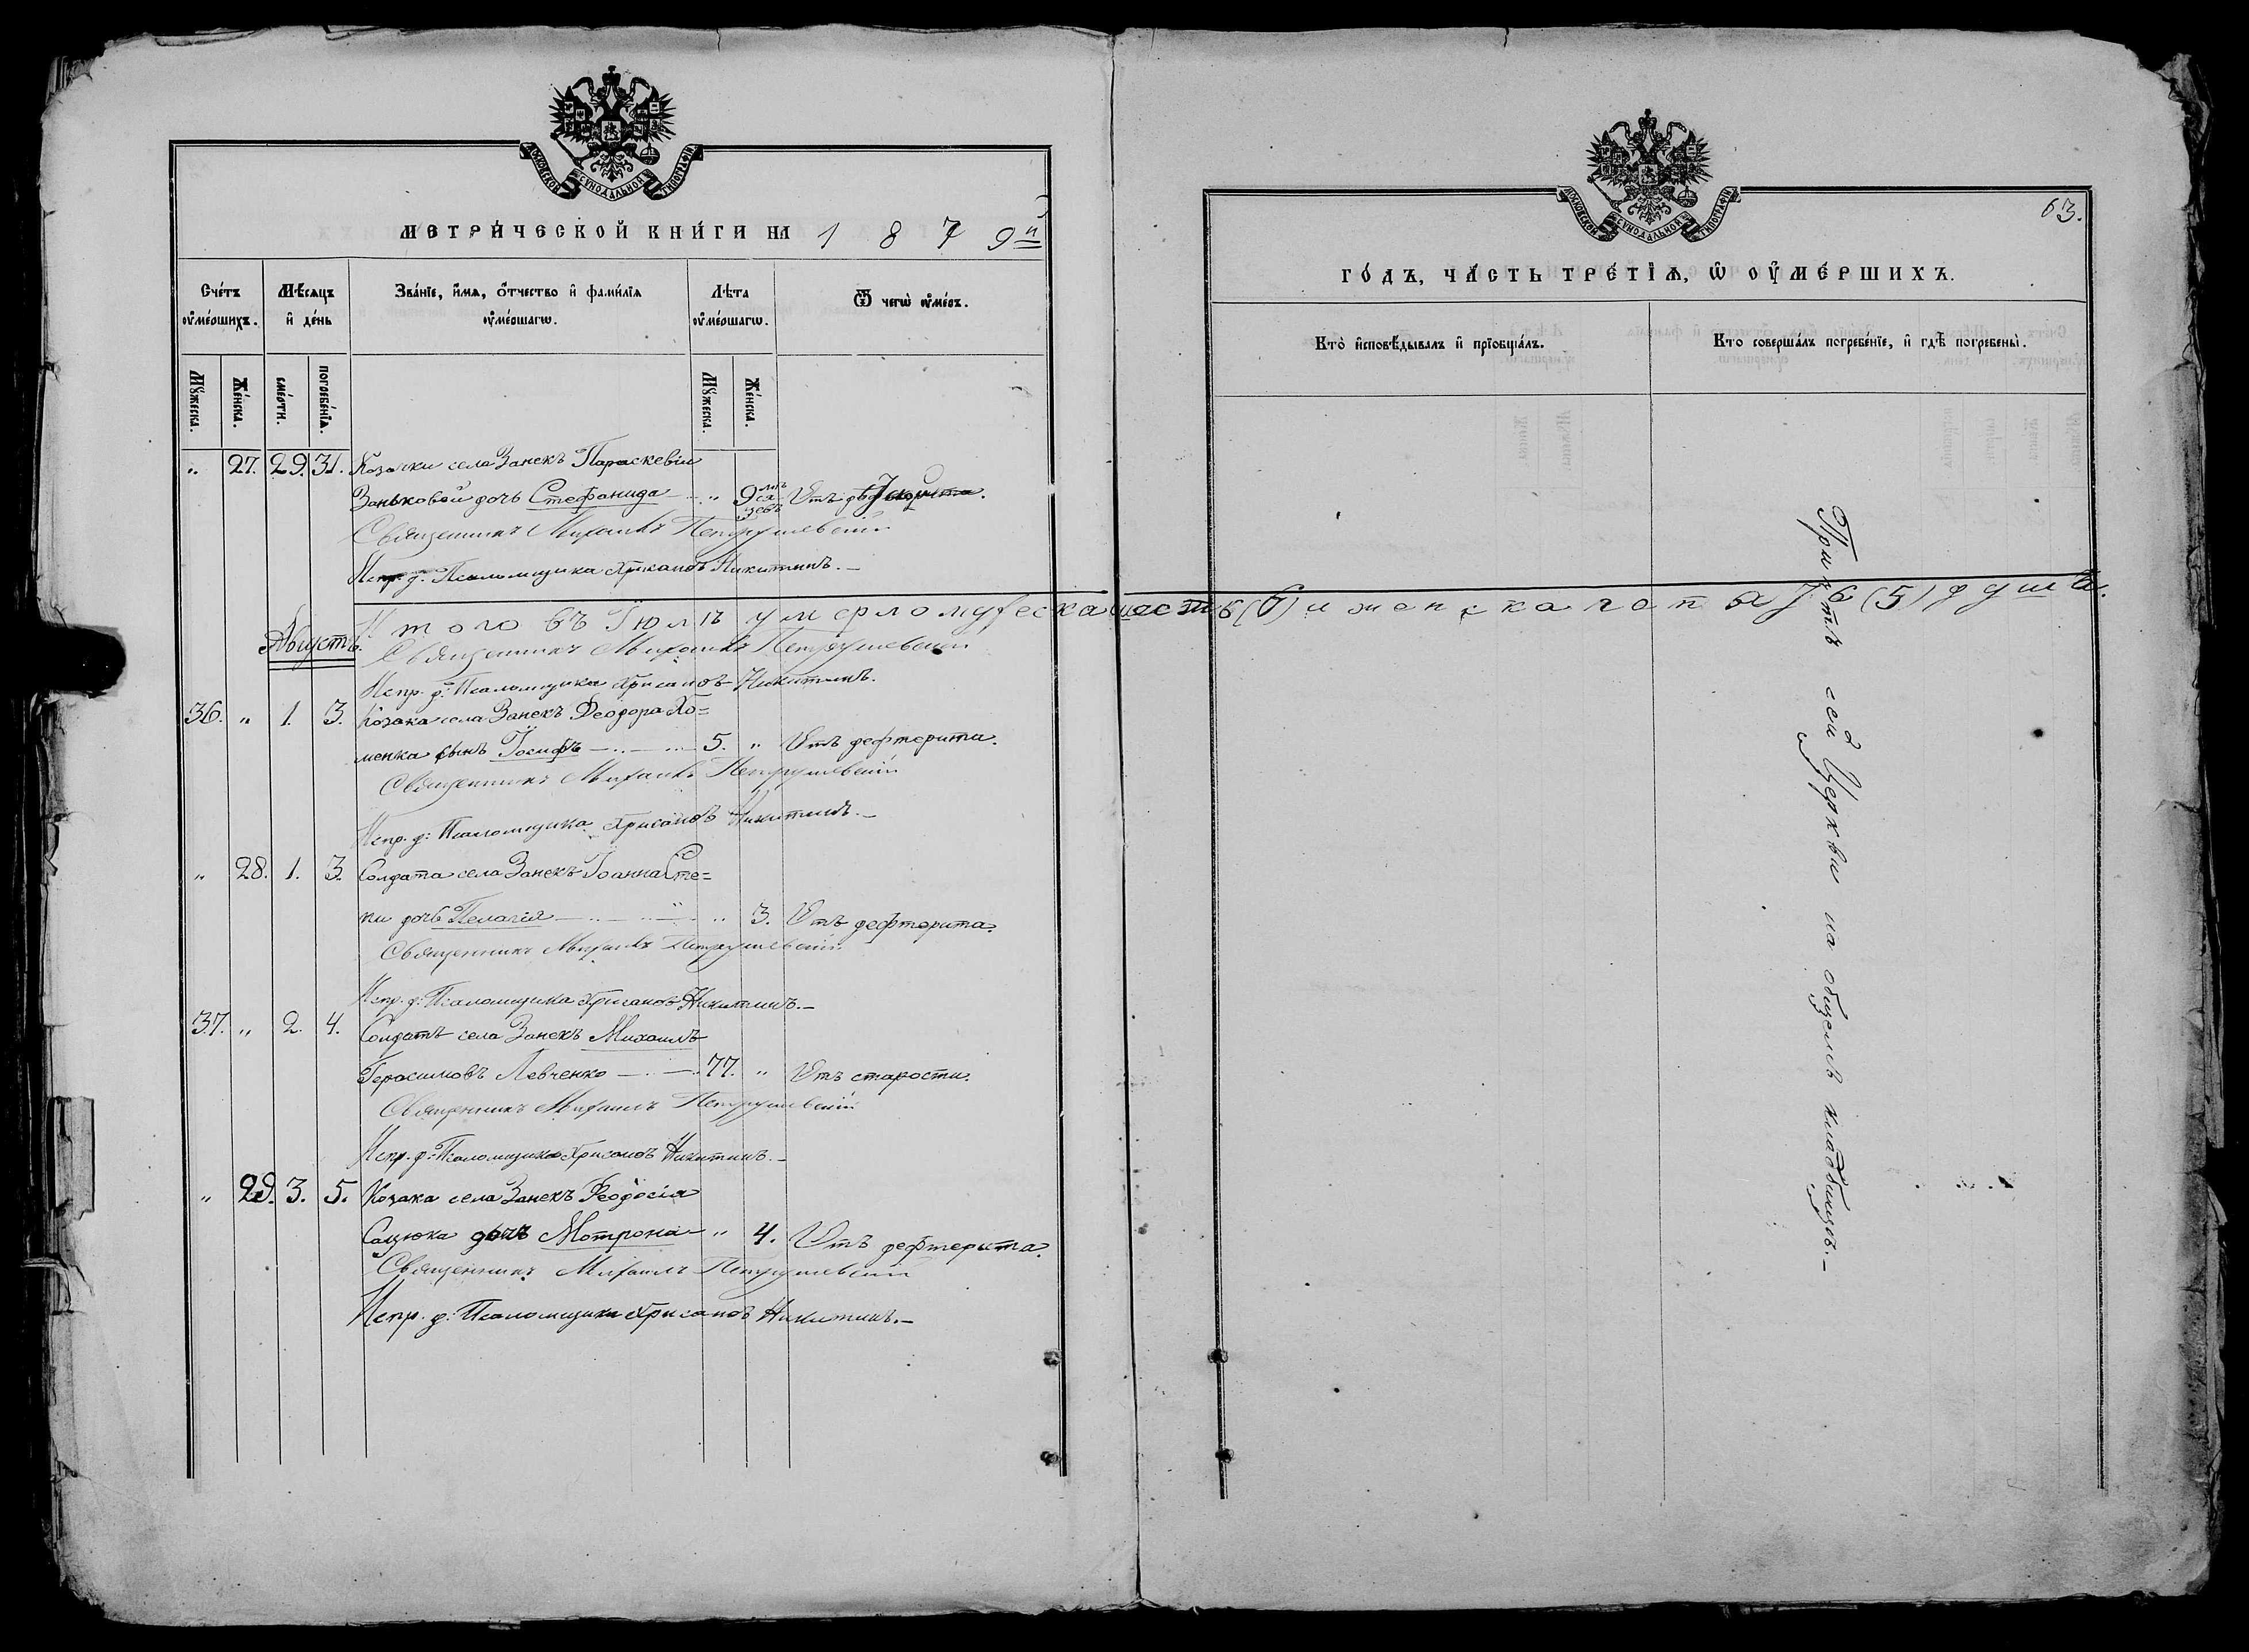 МОСКОВСКОЙ СѴНОДАЛЬНОЙ ТИПОГРАФІИ
МЕТРИ́ЧЕСКОЙ КНИ́ГИ НА 1879й
Сче́тъ ᲂу҆ме́ршихъ.
Мѣ́сяцъ и҆ де́нь
Зва́нїе, и҆́мя, ѻ҆́тчество и҆ фами́лїя ᲂу҆ме́ршагѡ.
Лѣ́та ᲂу҆ме́ршагѡ.
Ѿ чегѡ̀ ᲂу҆́меръ.
Мꙋ́жеска.
Же́нска.
сме́рти.
погребе́нїѧ.
Мꙋ́жеска.
Же́нска.
„ 27. 29. 31. Козачки села Занекъ Параскевіи
Заньковой дочь Стефанида — „ 9 мѣсяцевъ Отъ
Священникъ Михаилъ Петрушевскій
Испр. д. Псаломщика Хрисанѳъ Никитинъ. —
Итого въ Іюлѣ умерло мужеска шесть (6) и женска пять (5) душъ.
Августъ.
Священникъ Михаилъ Петрушевскій
Испр. д: Псаломщика Хрисанѳъ Никитинъ.
36. „ 1. 3. Козака села Занекъ Ѳеодора Хо=
менка сынъ Іосифъ — 5. „ Отъ дефтерита.
Священникъ Михаилъ Петрушевскій
Испр. д: Псаломщика Хрисанѳъ Никитинъ. —
„ 28. 1. 3. Солдата села Занекъ Іоанна Сте=
ки дочь Пелагія — „ 3. Отъ дефтерита.
Священникъ Михаилъ Петрушевскій
Испр. д: Псаломщика Хрисанѳъ Никитинъ. —
37. „ 2. 4. Солдатъ села Занекъ Михаилъ
Герасимовъ Левченко — 77. „ Отъ старости.
Священникъ Михаилъ Петрушевскій
Испр. д: Псаломщика Хрисанѳъ Никитинъ. —
„ 29. 3. 5. Козака села Занекъ Ѳеодосія
Сацюка дочь Мотрона — „ 4. Отъ дефтерита.
Священникъ Михаилъ Петрушевскій
Испр. д: Псаломщика Хрисанѳъ Никитинъ. —
МОСКОВСКОЙ СѴНОДАЛЬНОЙ ТИПОГРАФІИ
63.
ГО́ДЪ, ЧА́СТЬ ТРЕ́ТЇѦ, Ѡ҆ ОУ҆МЕ́РШИХЪ.
Кто̀ и҆сповѣ́дывалъ и҆ прїобща́лъ.
Кто соверша́лъ погребе́нїе, и҆ гдѣ̀ погребены̀.
Причтъ сей Церкви на общемъ кладбищѣ. —